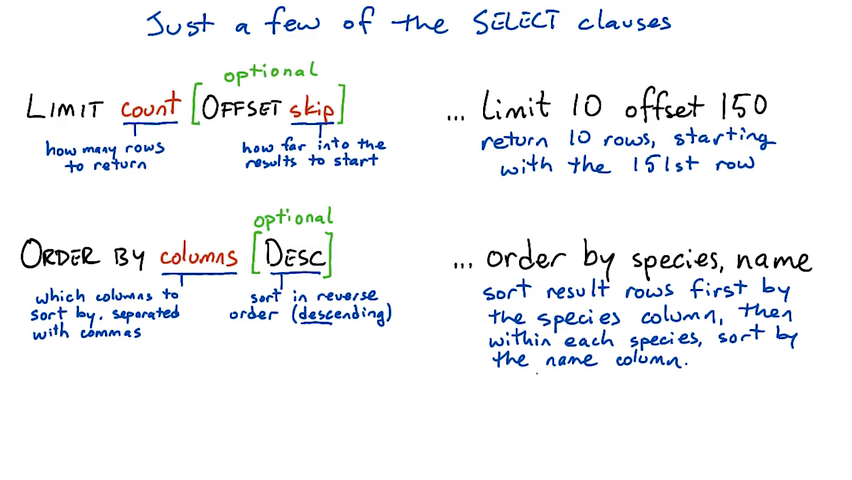 Just a few of the SELECT clauses
optional
LIMIT count [OFFSET skip]
how many rows
to return
how far into the
results to start
... limit 10 offset 150
return 10 rows, starting
with the 151st row
optional
ORDER BY columns [DESC]
which columns to
sort by, separated
with commas
sort in reverse
order (descending)
... order by species, name
sort result rows first by
the species column, then
within each species, sort by
the name column.